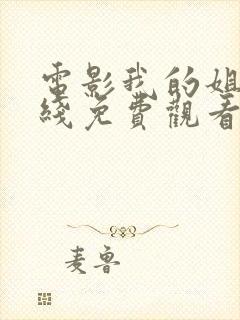 電影我的姐
綫免費觀看
麦鲁